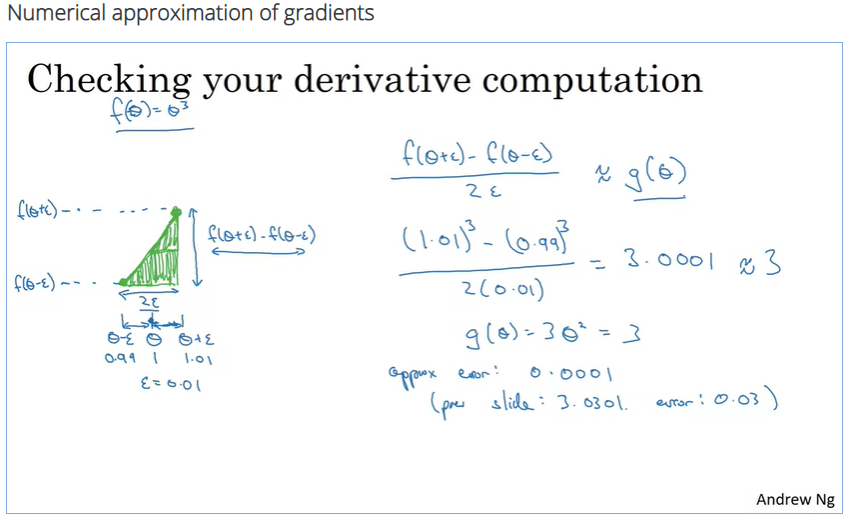 Numerical approximation of gradients
Checking your derivative computation
f(θ) = θ³
f(θ+ε) - f(θ-ε)
2ε
≈ g(θ)
f(θ+ε)
f(θ+ε) - f(θ-ε)
f(θ-ε)
2ε
θ-ε θ θ+ε
0.99 1 1.01
ε = 0.01
(1.01)³ - (0.99)³
2(0.01)
= 3.0001 ≈ 3
g(θ) = 3θ² = 3
approx error: 0.0001
(prev slide: 3.0301. error: 0.03)
Andrew Ng